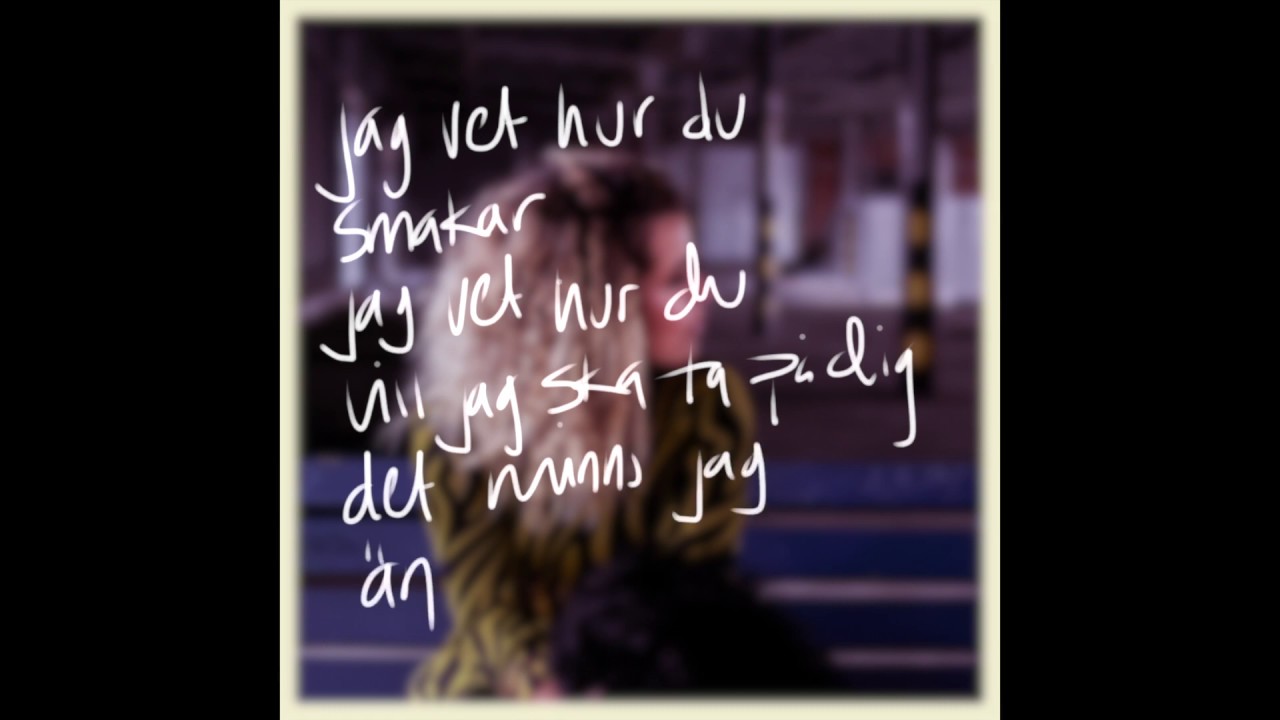 jag vet hur du
smakar
jag vet hur du
vill jag ska ta på dig
det minns jag
än